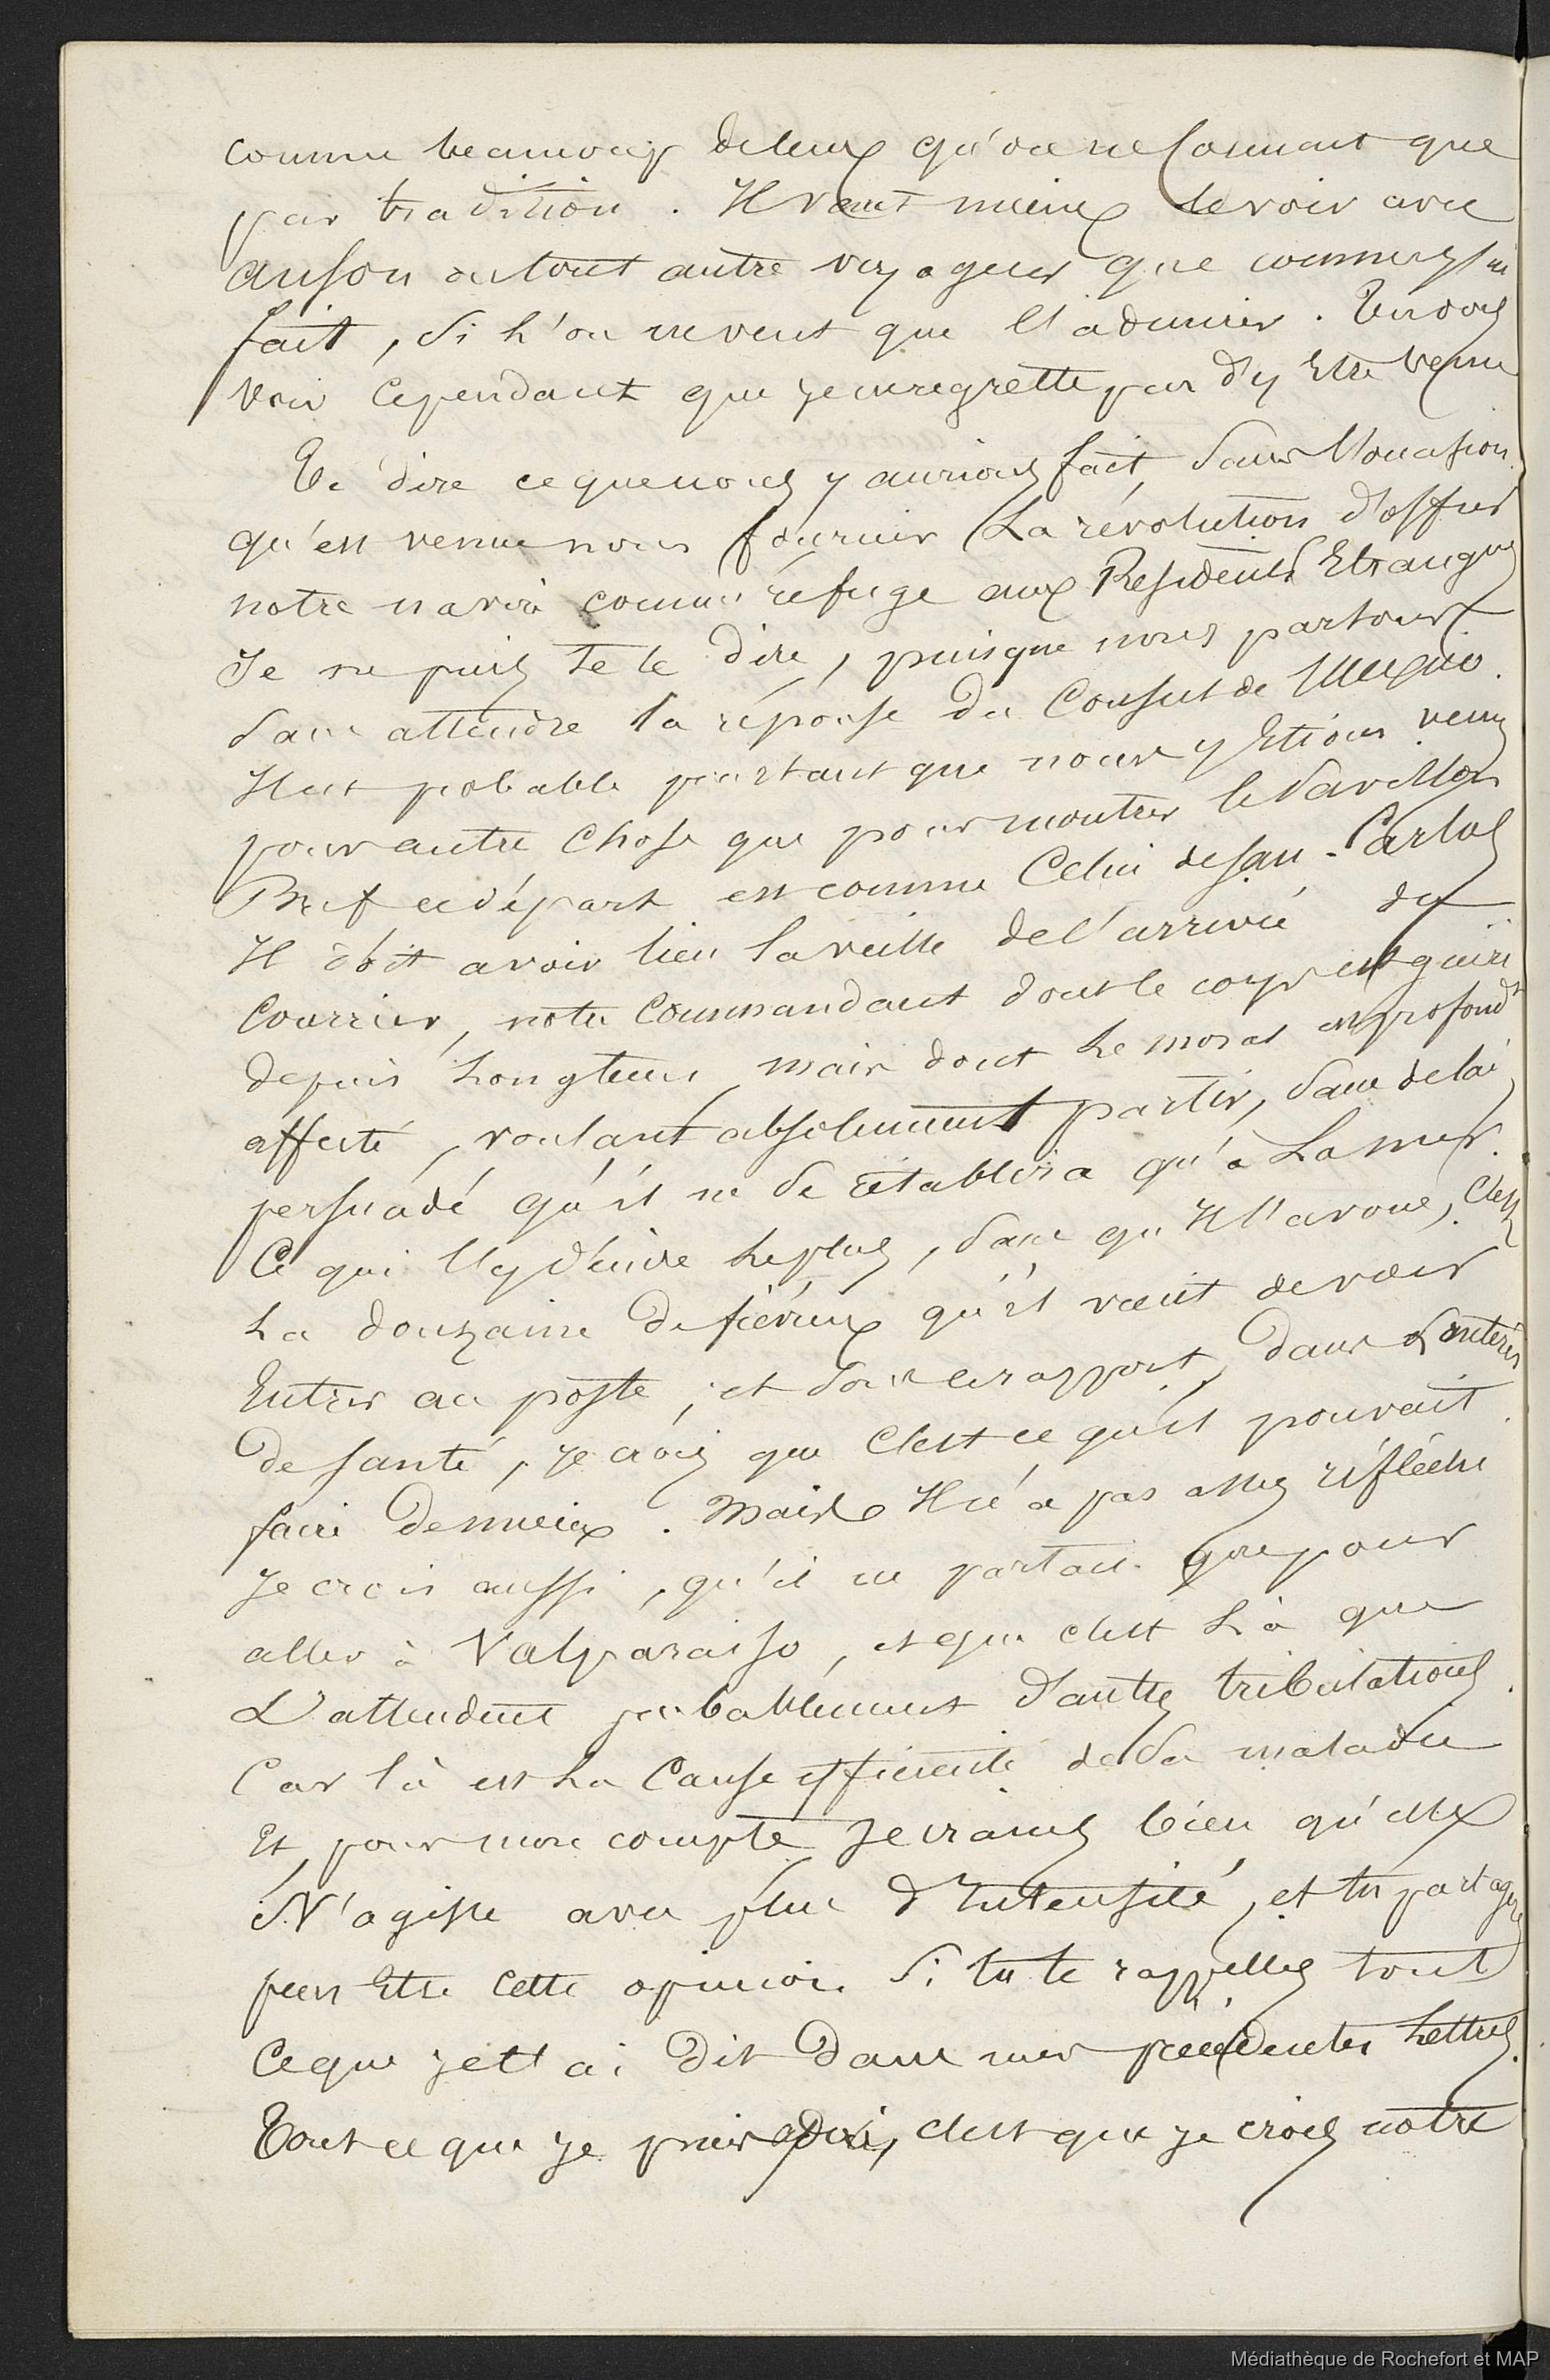 comme beaucoup de lieux qu'on ne connait que
par tradition. Il vaut mieux le voir avec
anson ou tout autre voyageur que comme j'ai
fait, si l'on ne veut que l'admirer. Tu dois
voir cependant que je ne regrette pas d'y être venu
Te dire ce que nous y aurions fait, sans l'occasion
qu'est venue nous fournir la révolution d'offrir
notre navire comme refuge aux Residents Etrangers
Je ne puis te le dire, puisque nous partons
sans attendre la réponse du Consul de Mexico.
Il est probable pourtant que nous y étions venus
pour autre chose que pour montrer le Pavillon
Bref ce départ est comme Celui de San-Carlos
Il doit avoir lieu la veille de l'arrivée du
Courrier, notre Commandant dont le corps est guéri
depuis longtems, mais dont le moral est profondt
affecté, voulant absolument partir, sans delai,
persuadé qu'il ne se rétablira qu'à La mer.
Ce qui l'y décide le plus, sans qu'Il l'avoue, C'est
La douzaine de fièvreux qu'il vient de voir
Entrer au poste, et sous ce rapport, dans l'intérêt
de santé, je crois que C'est ce qu'il pouvait
faire de mieux. Mais Il n'a pas assez réfléchi
Je crois aussi, qu'il ne partait que pour
aller à Valparaiso, et que c'est Là que
L'attendent probablement d'autres tribulations.
Car là est La Cause efficiente de Sa maladie
Et, pour mon compte Je crains bien qu'elle
N'agisse avec plus d'Intensité, et tu partageras
peut Etre Cette opinion. Si tu te rappelles tout
Ce que je t'ai Dit Dans mes précédentes Lettres.
Tout ce que je puis dire, c'est que je crois notre
Médiathèque de Rochefort et MAP